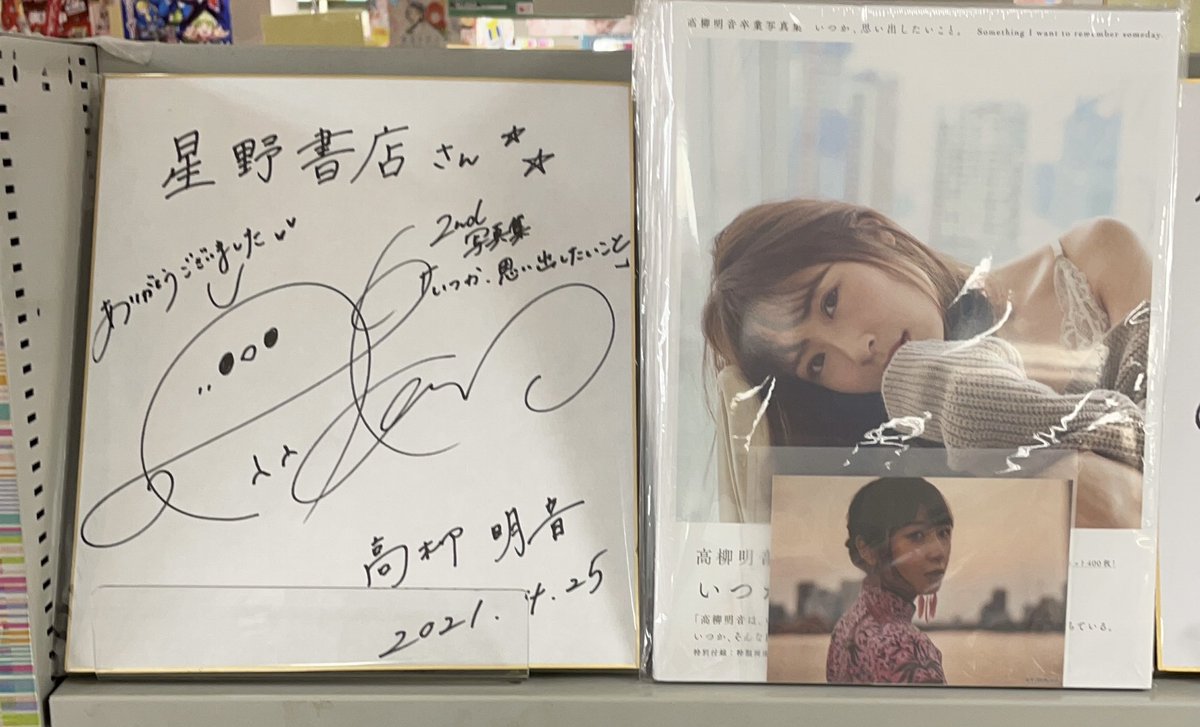 星野書店さん
ありがとうございました
2nd
写真集
「いつか、思い出したいこと」
高柳明音
2021.4.25
高柳明音卒業写真集 いつか、思い出したいこと。 Something I want to remember someday.
高柳明音
いつか
「高柳明音は、
いつか、そんな
特別付録:特製両面
ット400枚!
ている。